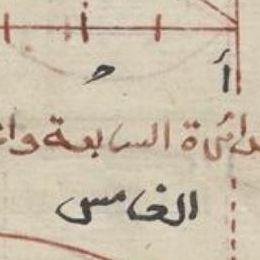 أ ح
دائرة السابعة وا
الخامس